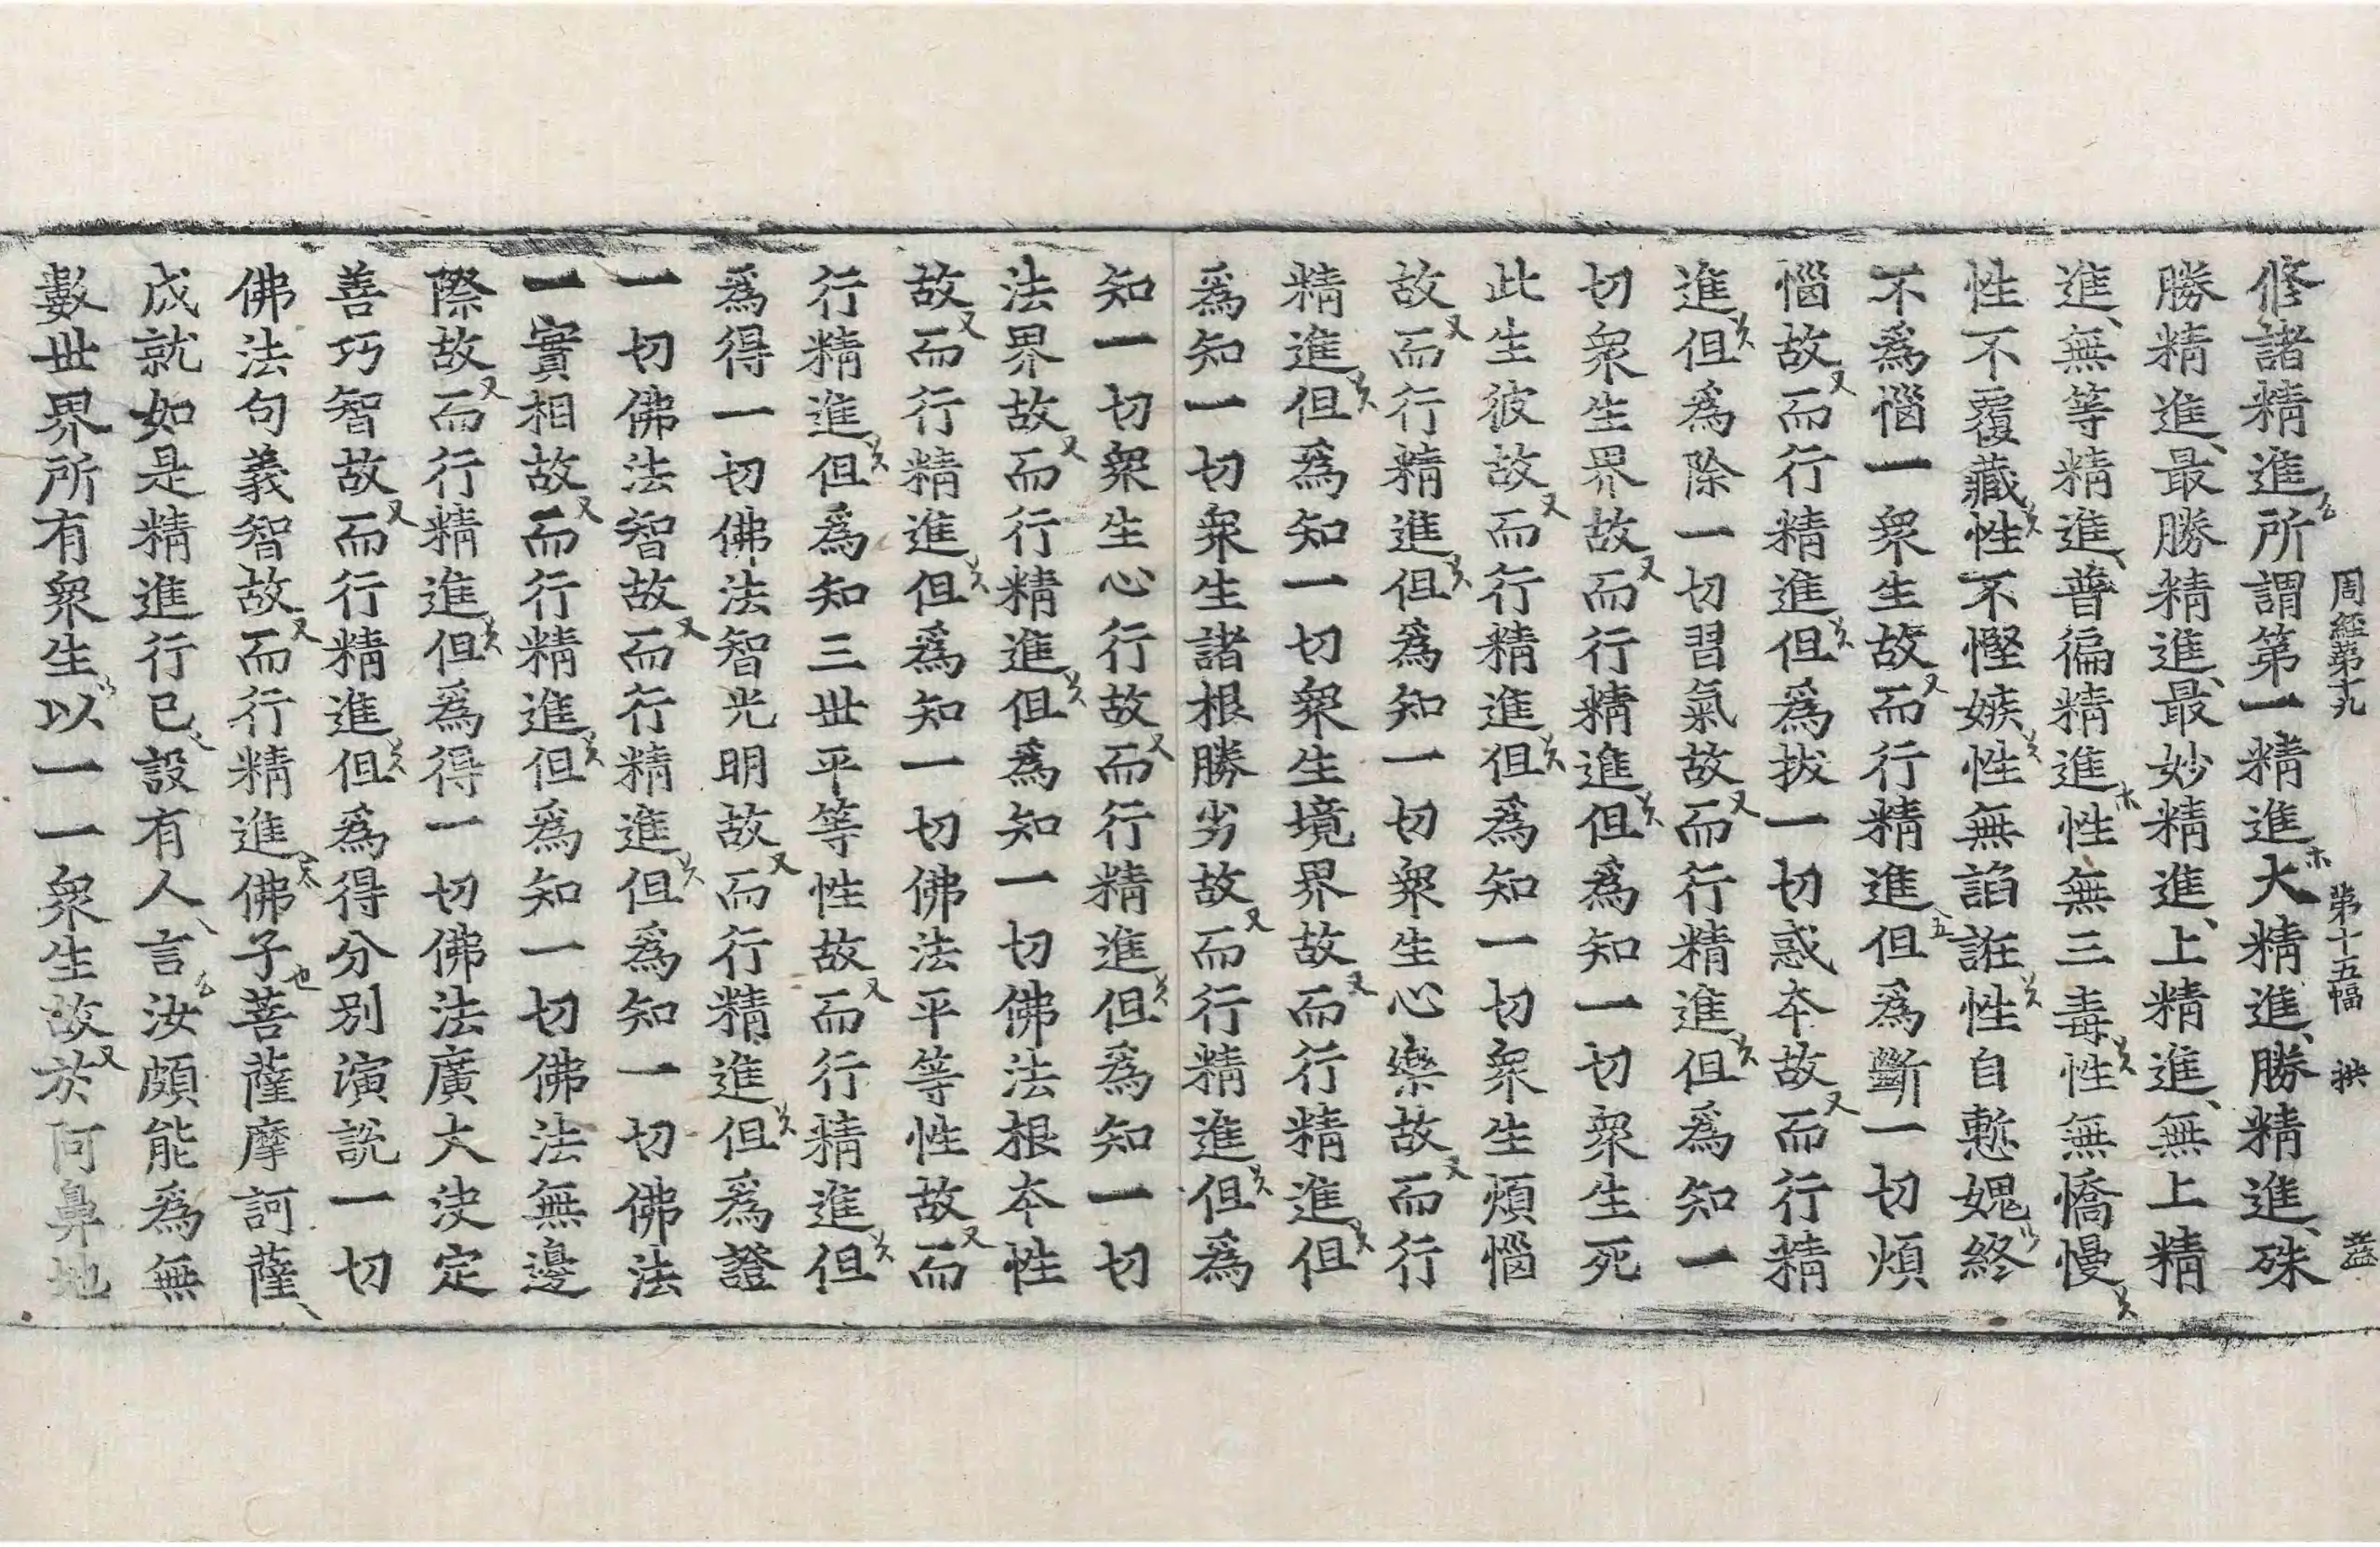 周經第十九 第十五幅 拱 益
修諸精進所謂第一精進大精進勝精進殊
勝精進最勝精進最妙精進上精進無上精
進無等精進普徧精進性無三毒性無憍慢
性不覆藏性不慳嫉性無諂誑性自慙媿終
不爲惱一衆生故而行精進但爲斷一切煩
惱故而行精進但爲拔一切惑本故而行精
進但爲除一切習氣故而行精進但爲知一
切衆生界故而行精進但爲知一切衆生死
此生彼故而行精進但爲知一切衆生煩惱
故而行精進但爲知一切衆生心樂故而行
精進但爲知一切衆生境界故而行精進但
爲知一切衆生諸根勝劣故而行精進但爲
知一切衆生心行故而行精進但爲知一切
法界故而行精進但爲知一切佛法根本性
故而行精進但爲知一切佛法平等性故而
行精進但爲知三世平等性故而行精進但
爲得一切佛法智光明故而行精進但爲證
一切佛法智故而行精進但爲知一切佛法
一實相故而行精進但爲知一切佛法無邊
際故而行精進但爲得一切佛法廣大決定
善巧智故而行精進但爲得分別演說一切
佛法句義智故而行精進佛子菩薩摩訶薩
成就如是精進行已設有人言汝頗能爲無
數世界所有衆生以一一衆生故於阿鼻地